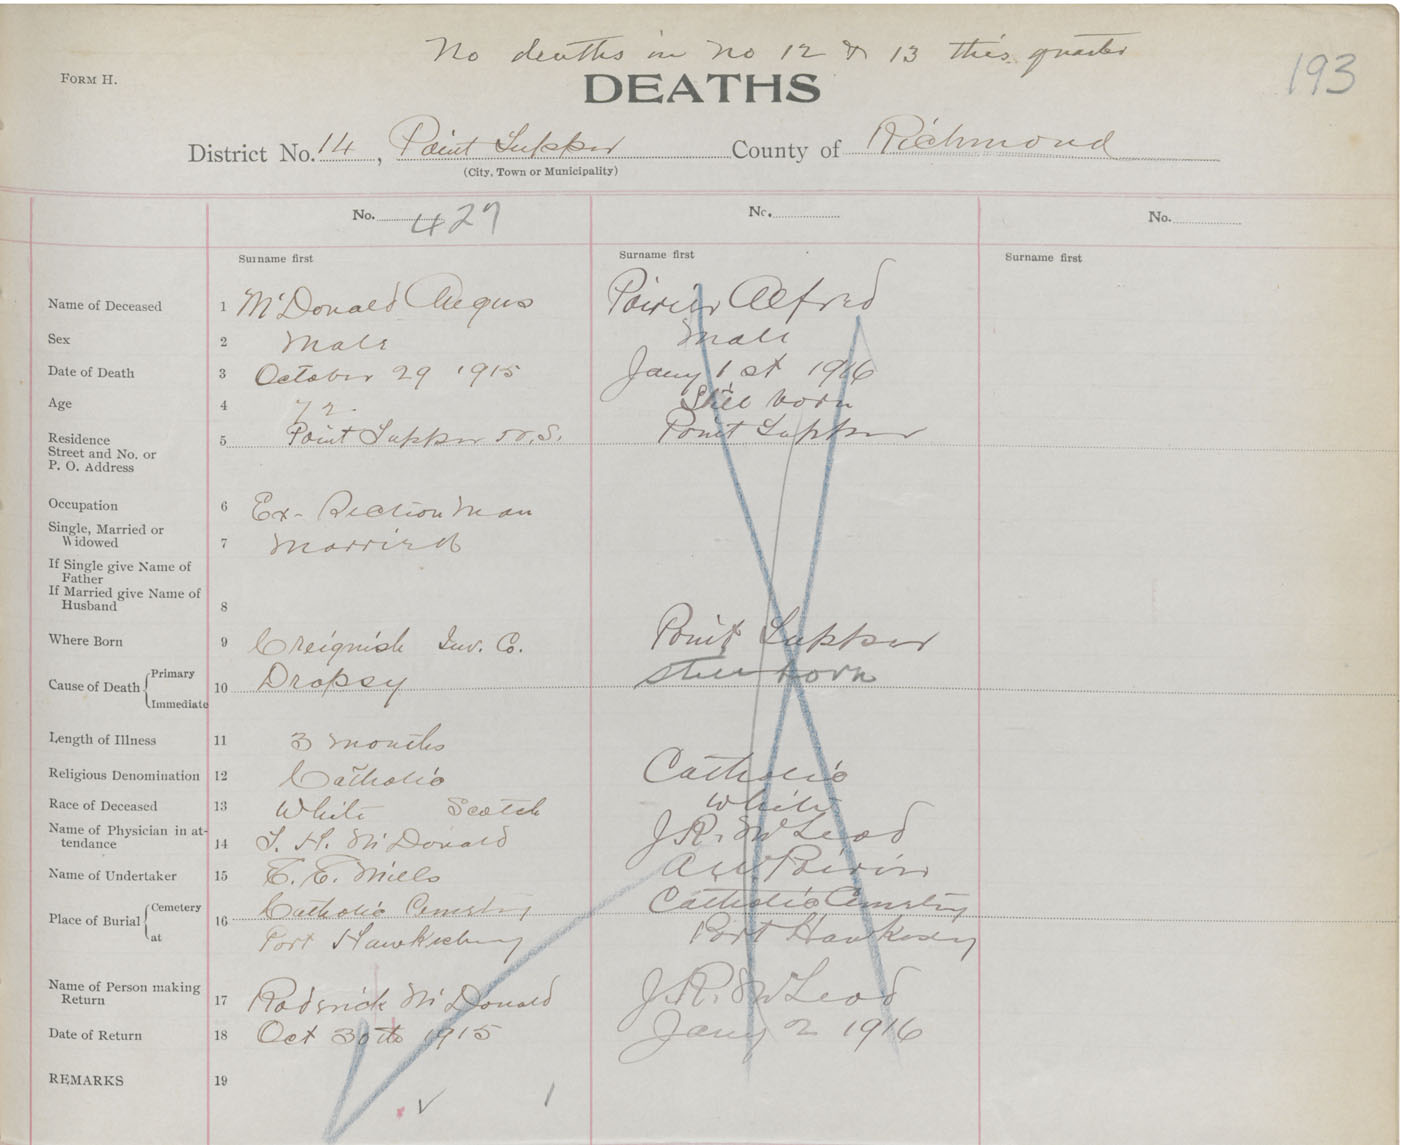 No deaths in No 12 & 13 this quarter
193
FORM H.
DEATHS
District No. 14, Point Tupper County of Richmond
(City, Town or Municipality)
No. 427 No. No.
Surname first Surname first Surname first
Name of Deceased 1 McDonald Angus Poirier Alfred
Sex 2 Male Male
Date of Death 3 October 29 1915 Jany 1st 1916
Age 4 72 Still born
Residence
Street and No. or
P. O. Address
5 Point Tupper N.S. Point Tupper
Occupation 6 Ex-Section Man
Single, Married or
Widowed 7 Married
If Single give Name of
Father
If Married give Name of
Husband 8
Where Born 9 Creignish Inv. Co. Point Tupper
Cause of Death Primary
Immediate
10 Dropsy Still born
Length of Illness 11 3 months
Religious Denomination 12 Catholic Catholic
Race of Deceased 13 White Scotch White
Name of Physician in at-
tendance 14 McDonald J.R. McLeod
Name of Undertaker 15 Mills Poirier
Place of Burial Cemetery
at
16 Catholic Cemetry Catholic Cemetry
Port Hawkesbury Port Hawkesy
Name of Person making
Return 17 Roderick McDonald J.R. McLeod
Date of Return 18 Oct 30th 1915 Jany 2 1916
REMARKS 19